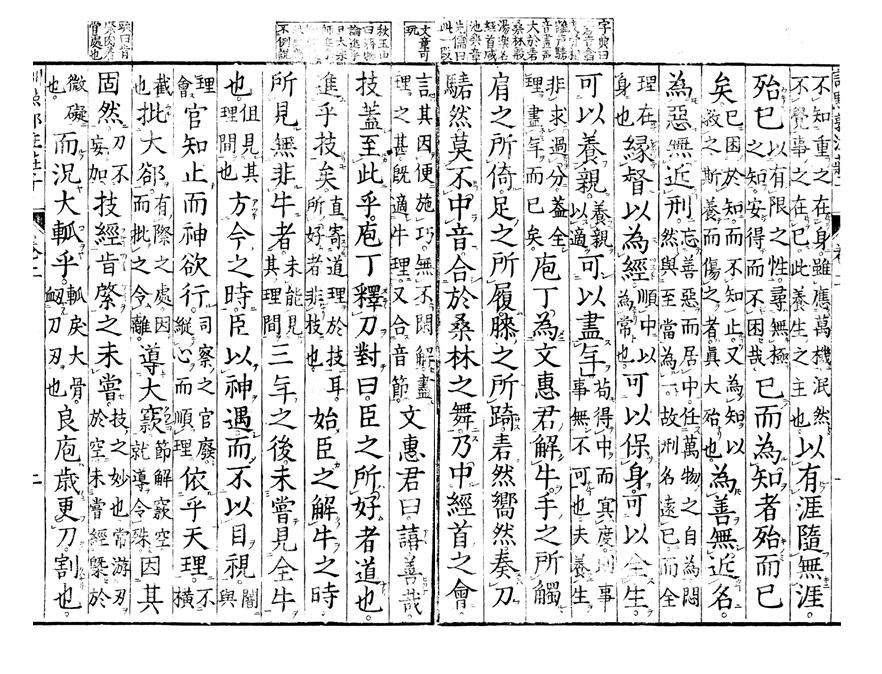 不知重之在身雖應萬機泯然
不覺事之在己此養生之主也以有涯隨無涯
殆已以有限之性尋無極之知安得而不困哉已而為知者殆而已
矣已困於知而不知止又為知以救之斯養而傷之者真大殆也為善無近名
為惡無近刑忘善惡而居中任萬物之自為悶然與至當為一故刑名遠己而全
理在身也緣督以為經順中以為常也可以保身可以全生
可以養親養親以適可以盡年苟得中而冥度則事事無不可也夫養生
非求過分蓋全理盡年而已矣庖丁為文惠君解牛手之所觸
肩之所倚足之所履膝之所踦砉然嚮然奏刀
騞然莫不中音合於桑林之舞乃中經首之會
言其因便施巧無不閑解盡理之甚既適牛理又合音節文惠君曰譆善哉
技蓋至此乎庖丁釋刀對曰臣之所好者道也
進乎技矣直寄道理於技耳所好者非技也始臣之解牛之時
所見無非牛者未能見其理間三年之後未嘗見全牛
也但見其理間也方今之時臣以神遇而不以目視闇與
理會官知止而神欲行司察之官廢縱心而順理依乎天理不橫
截也批大郤有際之處因而批之令離導大窾節解窾空就導令殊因其
固然刀不妄加技經肯綮之未嘗技之妙也常游刃於空未嘗經槩於
微礙也而況大軱乎軱戾大骨衂刀刃也良庖歲更刀割也